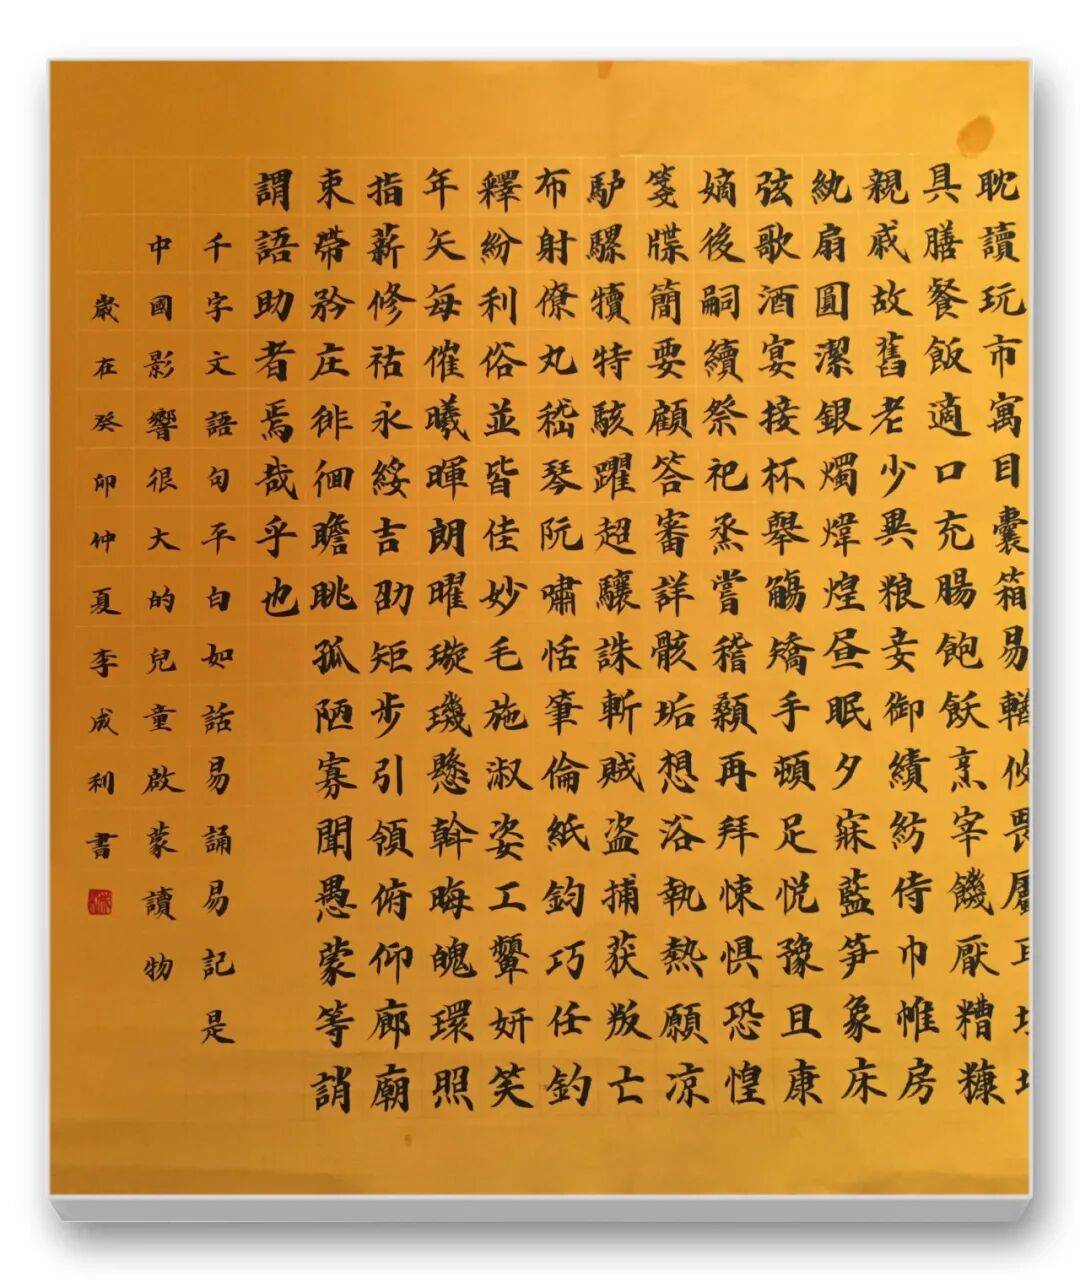 耽讀玩市寓目囊箱易輶攸畏屬
具膳餐飯適口充腸飽飫烹宰饑厭糟糠
親戚故舊老少異粮妾御績紡侍巾帷房
紈扇圓潔銀燭煒煌昼眠夕寐藍笋象床
弦歌酒宴接杯舉觴矯手頓足悦豫且康
嫡後嗣續祭祀烝嘗稽顙再拜悚惧恐惶
箋牒簡要顧答審詳骸垢想浴執熱願凉
馿騾犢特駭躍超驤誅斬賊盗捕获叛亡
布射僚丸嵇琴阮嘯恬筆倫紙鈞巧任釣
釋紛利俗並皆佳妙毛施淑姿工顰妍笑
年矢每催曦暉朗曜璇璣懸斡晦魄環照
指薪修祜永綏吉劭矩步引領俯仰廊廟
束帶矜庄徘徊瞻眺孤陋寡聞愚蒙等誚
謂語助者焉哉乎也
千字文語句平白如話易誦易記是
中國影響很大的兒童啟蒙讀物
歲在癸卯仲夏李成利書